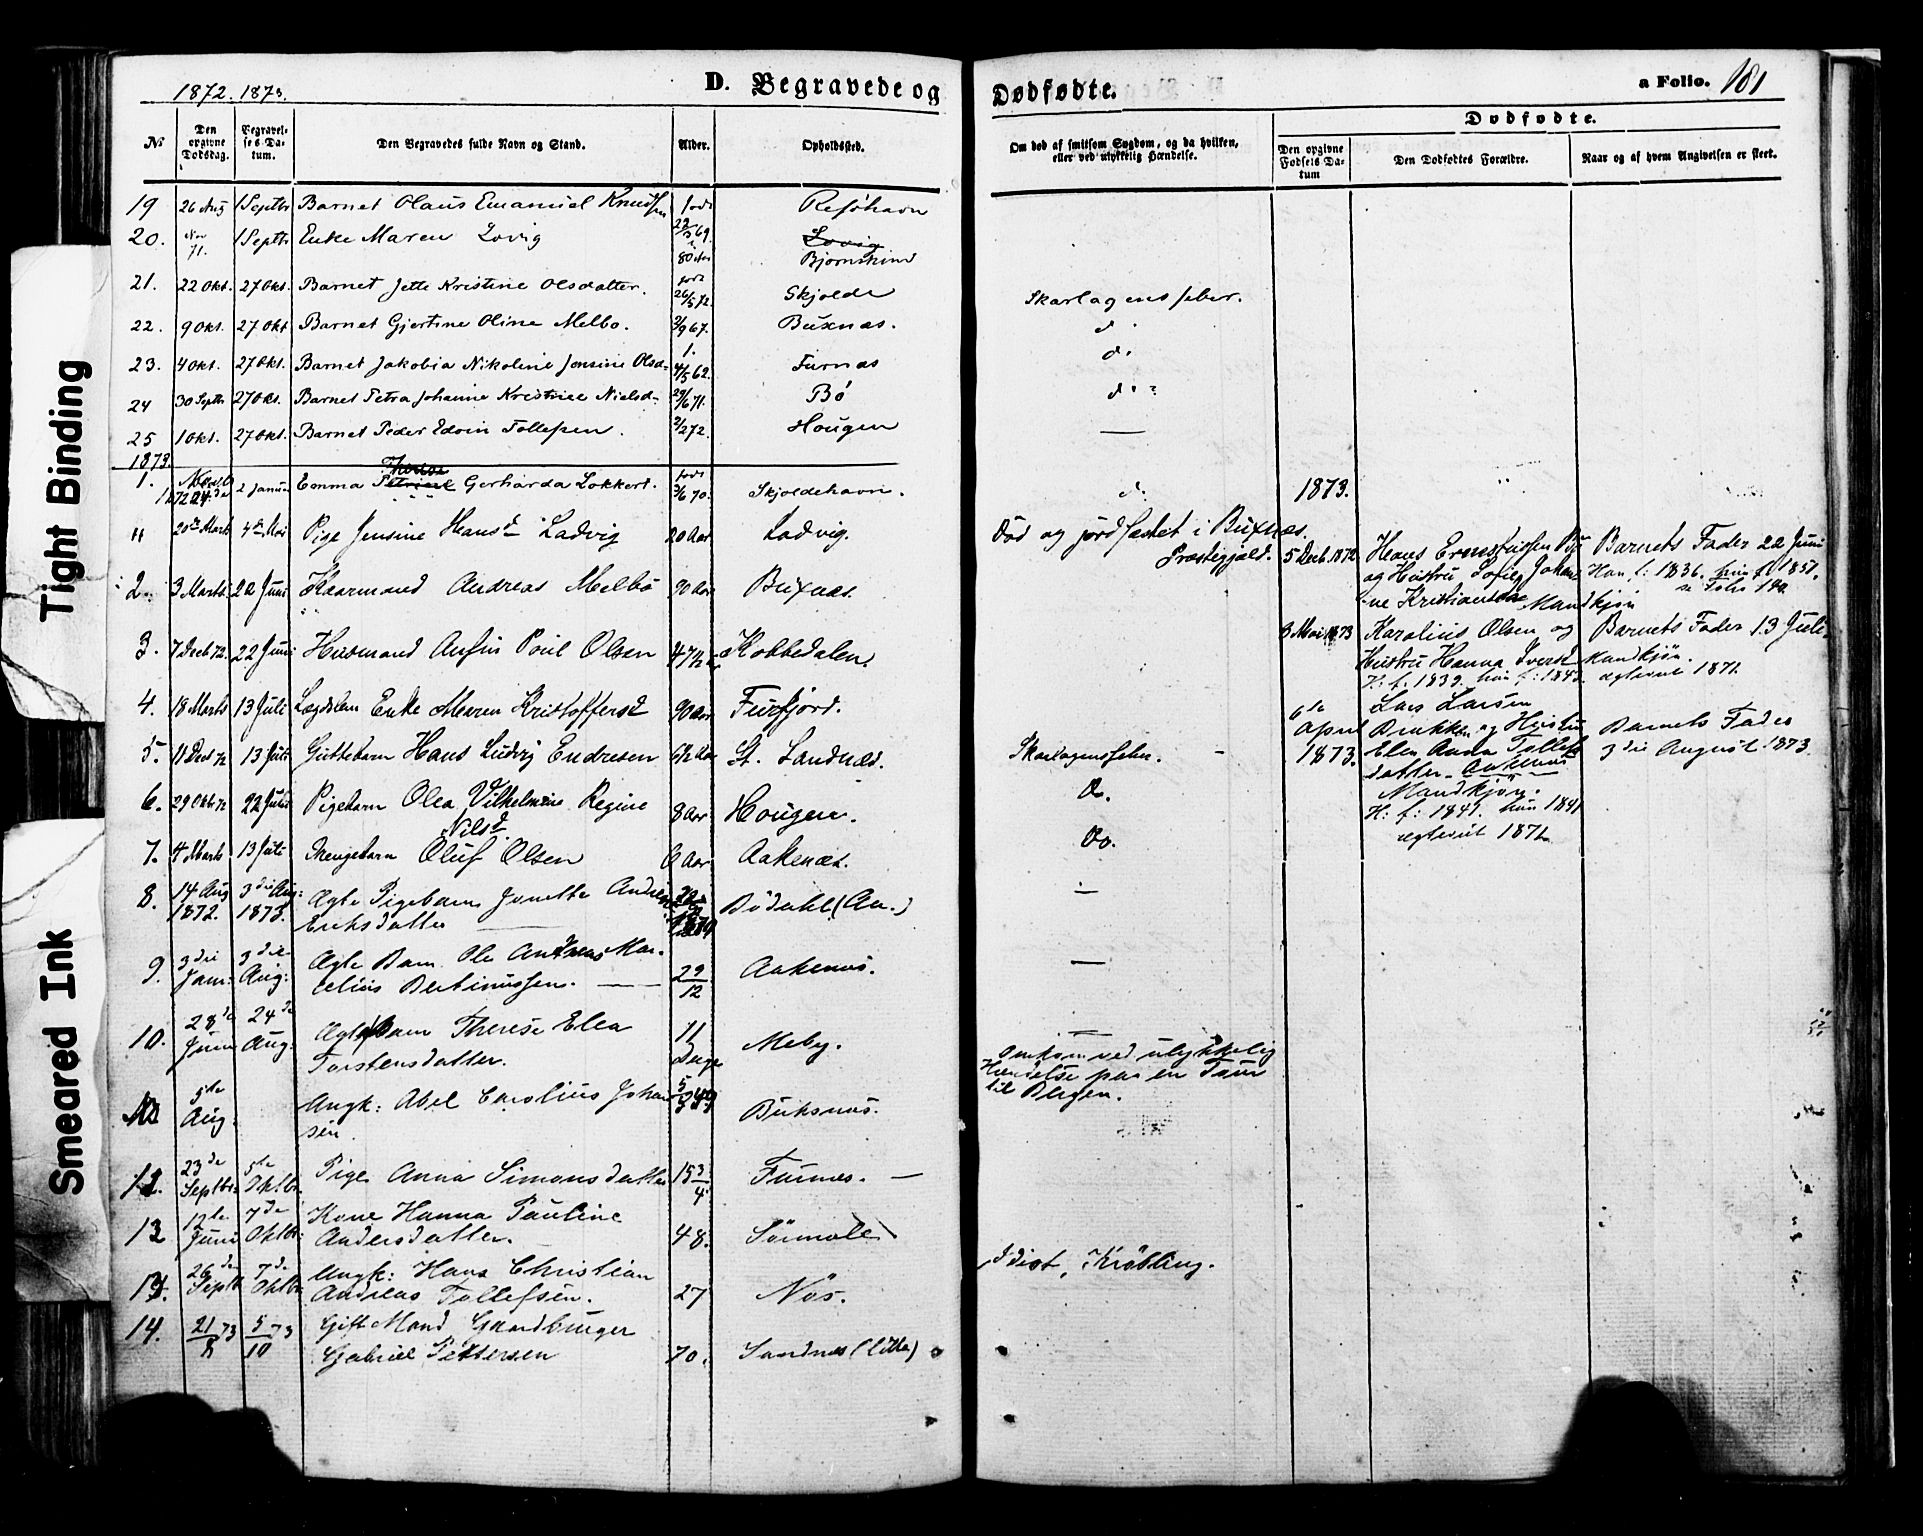 1872. 1873.
D. Begravede og
Dødfødte.
a Folio. 181
Tight Binding
Smeared Ink
No
Den opgivne Dødsdag.
Begravelses Datum.
Den Begravedes fulde Navn og Stand.
Alder.
Opholdssted.
Om død af smitsom Sygdom, og da hvilken,
eller ved ulykkelig Hændelse.
Dødfødte.
Den opgivne Fødsels Datum
Den Dødfødtes Forældre.
Naar og af hvem Angivelsen er skeet.
19 26 Aug 1 Septbr Barnet Olaus Emanuel Knudsen født 69. Refsøhavn
20. Nov 71. 1 Septbr Enke Maren Lovig 80 Aar Lovig Bjørnskind
21. 22 Okt. 27 Okt. Barnet Jette Kristine Olsdatter. født 26/5 72. Skjolde Skarlagensfeber.
22. 9 Okt. 27 Okt Barnet Gjertine Oline Melbo. 2/9 67. Buxnæs. d.
23. 4 Okt. 27 Okt. Barnet Jakobia Nikoline Jensine Olsd. 4/5 62. Furnæs d.
24 30 Septbr 27 Okt. Barnet Petra Johanne Kristine Nielsd. 29/6 71. Bø d.
25 1 Okt. 27 Okt. Barnet Peder Edvin Tollefsen. 2/2 72. Hougen —
1873.
1. 1872 24de 2 Januar Emma Petrine Therese Gerharda Lokkert. født 3/6 70. Skjoldehavn. d.
1873.
11 20de Marts 4de Mai Pige Jensine Hansd Ladvig 20 Aar Ladvig. Død og jordfæstet i Buxnæs
Præstegjæld.
2. 3 Marts 22 Juni Kaarmand Andreas Melbø 90 Aar Buxnæs.
3. 7 Decb 72. 22 Juni Husmand Anfin Poul Olsen 47½ Kobbedalen.
4. 18 Marts 13 Juli Lægdslem Enke Maren Kristoffersd 90 Aar Furfjord.
5. 11 Dec 72 13 Juli Guttebarn Hans Ludvig Endresen 6½ Aar St. Sandnæs. Skarlagensfeber. —
6. 29 Oktbr 72 22 Juni Pigebarn Olea Vilhelmine Regine
Nilsd. 8 Aar Hougen. Do.
7. 4 Marts 13 Juli Drengebarn Oluf Olsen 6 Aar Aakenæs. Do.
8. 14 Aug 1872. 3die Aug: 1873. Ægte Pigebarn Jonette
Eriksdatter Bödahl (Aa.) —
9. 3die Jan: 3die Aug: Ægte Barn Ole Andreas Mar-
celius Bertinussen. — 29/12 Aakenæs. —
10. 28de Juni 24de Aug: Ægte Barn Therese Elea
Torstensdatter. 11 Dage Meby. —
5te Aug: Ungk: Abel Carolius Johan-
sen. Buksnæs. Omkom ved ulykkelig
Hændelse paa en Tour
til Bergen.
12. 23de Septbr. 5te Oktbr. Pige Anna Simonsdatter 15 3/4 Furnæs. —
13 12te Juni 7de Oktbr. Kone Hanna Pauline
Andersdatter. 48. Sörmole
26de Septbr 7de Oktbr Ungk: Hans Christian
Andreas Tollefsen. 27 Nös. Idiot, Kröbling.
14. 21/8 73 5/10 73 Gift Mand Gaardbruger
Gabriel Pettersen 70. Sandnæs (lille)
5 Decb 1872 Hans Ernstussen
og Hustru Sofie Johan-
ne Kristiansda Mandkjøn
Barnets Fader 22 Juni
Han f: 1836. hun f. 1851.
3 Mai 1873 Karolius Olsen og
Hustru Hanna Iversd Mandkjøn.
H: f. 1839. hun f: ægteviet 1871
Barnets Fader 13 Juli
6te April 1873. Lars Larsen
og Hustru
Elen Anna Tollefs-
datter. Aakenæs
Mandkjøn.
H: f: 1841. hun 1841
ægteviet 1871
Barnets Fader
3die August 1873